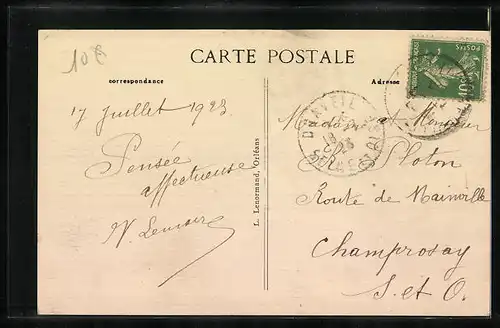 10 €
CARTE POSTALE
correspondance
Adresse
POSTES
10
17 Juillet 1923
Pensée
affectueuse
L. Lenormand, Orléans
DRAVEIL
Madame et Monsieur
Ploton
Route de Mainville
Champrosay
S. et O.